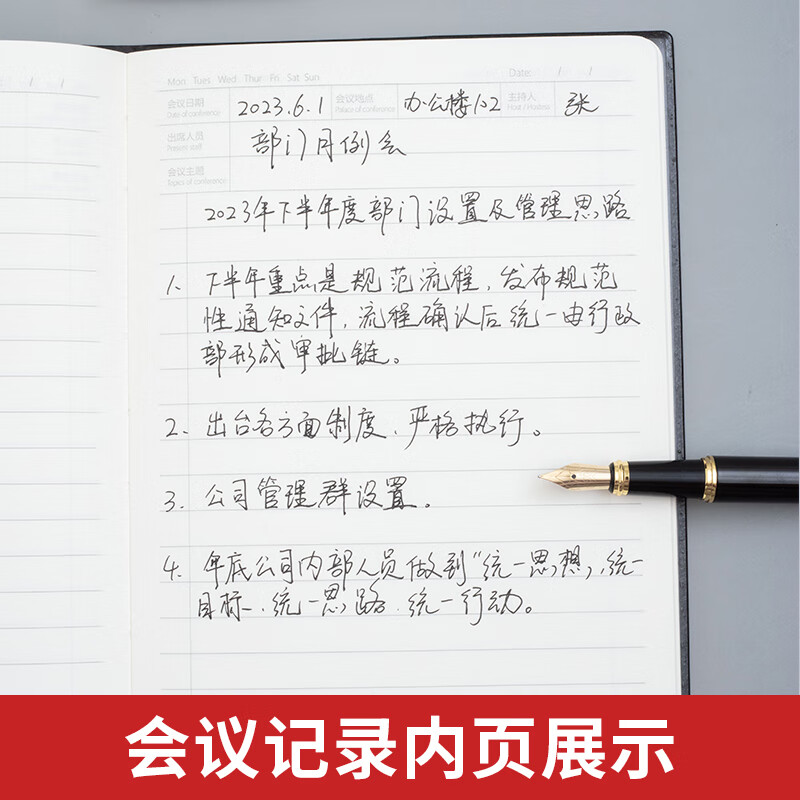 Mon Tues Wed Thur Fri Sat Sun Date: / /
会议日期 2023.6.1 会议地点 办公楼102 主持人 张
Date of conference Palace of conference Host / Hostess
出席人员 部门月例会
Present staff
会议主题
Topics of conference
2023年下半年度部门设置及管理思路
1. 下半年重点是规范流程,发布规范
性通知文件,流程确认后统一由行政
部形成审批链。
2、出台各方面制度、严格执行。
3. 公司管理群设置。
4. 年底公司内部人员做到"统一思想,统一
目标、统一思路、统一行动。
会议记录内页展示